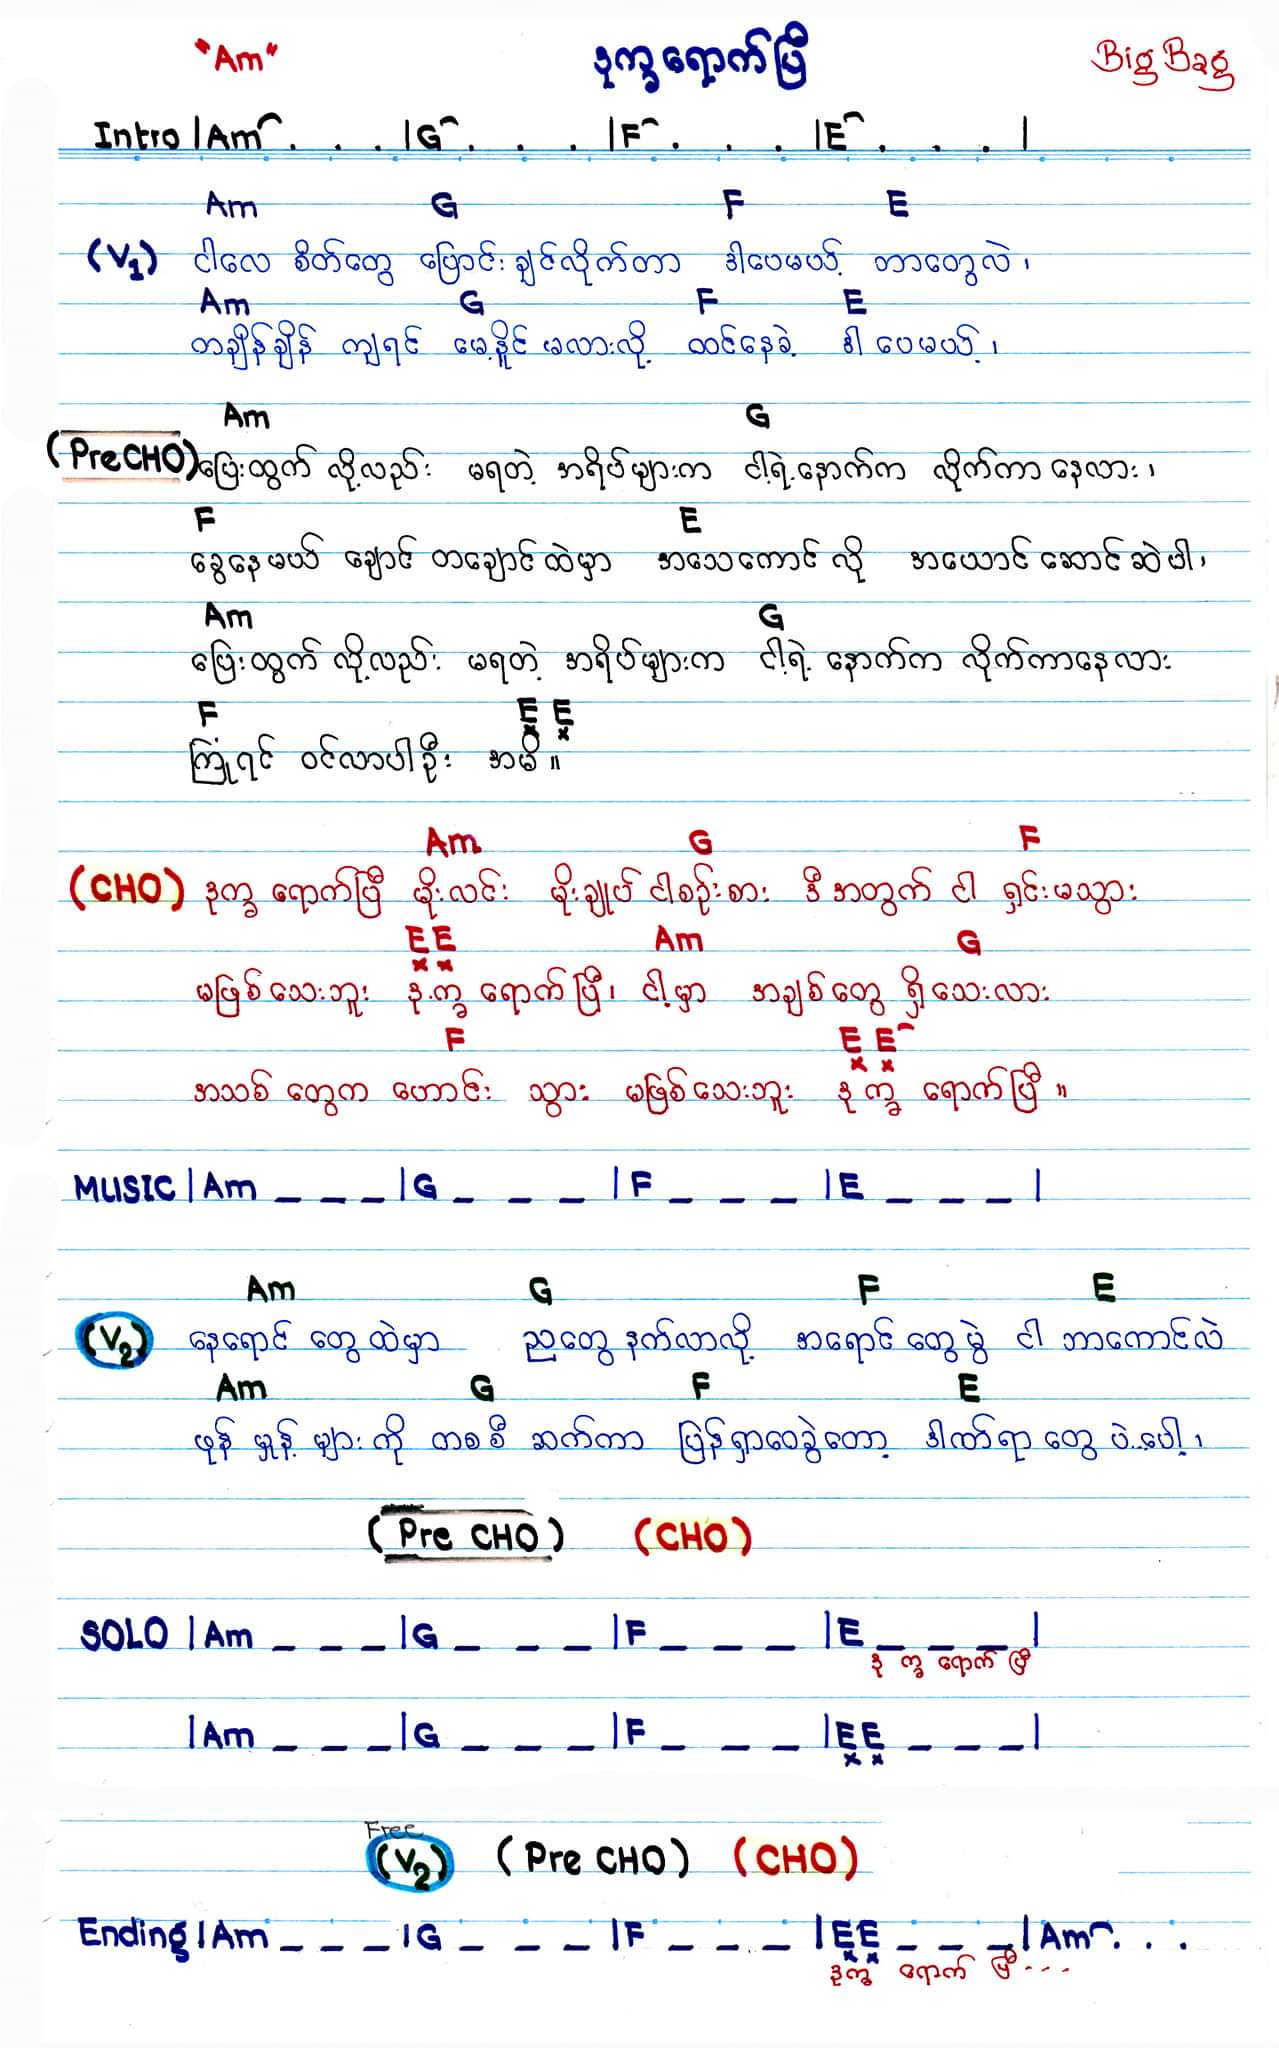 "Am" ဒုက္ခရောက်ပြီ Big Bag
Intro |Am . . . |G . . . |F . . . |E . . . |
Am G F E
(V1) ငါလေ စိတ်တွေ ပြောင်းချင်လိုက်တာ ဒါပေမယ့် ဘာတွေလဲ၊
Am G F E
တချိန်ချိန် ကျရင် မေ့နိုင်မလားလို့ ထင်နေခဲ့ ဒါပေမယ့်၊
Am G
(PreCHO) ပြေးထွက် လို့လည်း မရတဲ့ အရိပ်များက ငါ့ရဲ့နောက်က လိုက်ကာနေလား၊
F E
ခွေနေမယ် ချောင် တချောင်ထဲမှာ အသေကောင် လို အယောင်ဆောင်ဆဲပါ၊
Am G
ပြေးထွက် လို့လည်း မရတဲ့ အရိပ်များက ငါ့ရဲ့ နောက်က လိုက်ကာနေလား
F E E
ကြုံရင် ဝင်လာပါဦး အမိ။
Am G F
(CHO) ဒုက္ခ ရောက်ပြီ မိုးလင်း မိုးချုပ် ငါစဉ်းစား ဒီအတွက် ငါ ရှင်းမသွား
E E Am G
မဖြစ်သေးဘူး ဒုက္ခ ရောက်ပြီ၊ ငါ့မှာ အချစ်တွေ ရှိသေးလား
F E E
အသစ်တွေက ဟောင်း သွား မဖြစ်သေးဘူး ဒုက္ခ ရောက်ပြီ။
MUSIC |Am _ _ _ |G _ _ _ |F _ _ _ |E _ _ _ |
Am G F E
(V2) နေရောင်တွေထဲမှာ ညတွေ နက်လာလို့ အရောင်တွေမဲ့ ငါ ဘာကောင်လဲ
Am G F E
ဖုန်မှုန့်များကို တစစီ ဆက်ကာ ပြန်ရှာဝေခွဲတော့ ဒါဏ်ရာတွေ ပဲ..ပေါ့၊
(Pre CHO) (CHO)
SOLO |Am _ _ _ |G _ _ _ |F _ _ _ |E _ _ _ |
ဒုက္ခ ရောက် ပြီ
|Am _ _ _ |G _ _ _ |F _ _ _ |E E _ _ _ |
Free
(V2) (Pre CHO) (CHO)
Ending |Am _ _ _ |G _ _ _ |F _ _ _ |E E _ _ _ |Am . . .
ဒုက္ခ ရောက် ပြီ...